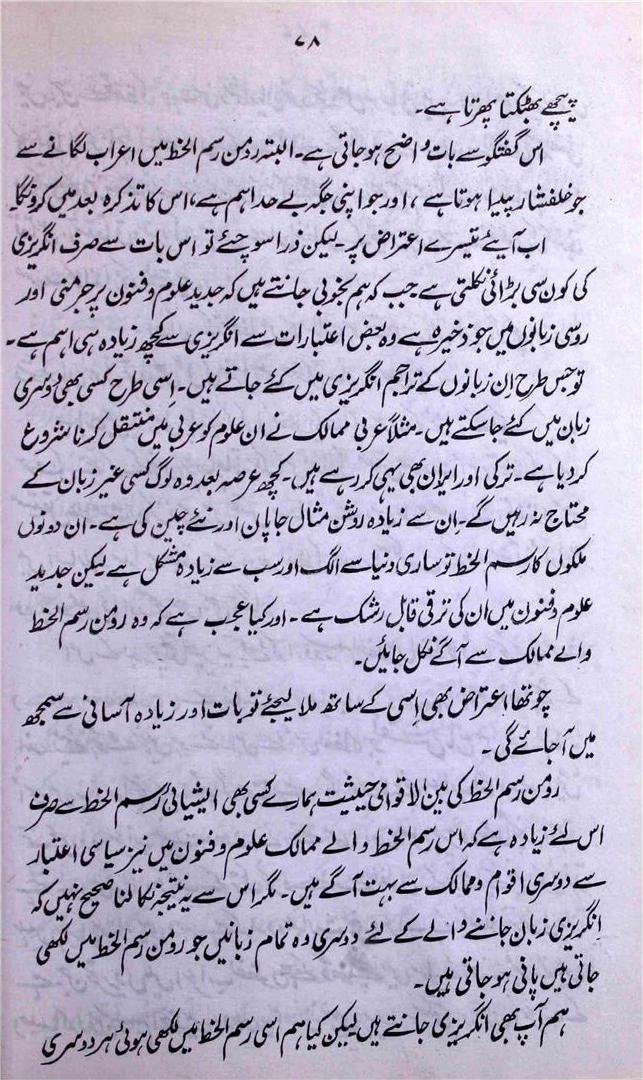 ۷۸
پیچھے بھٹکتا پھرتا ہے۔
اس گفتگو سے بات واضح ہو جاتی ہے۔ البتہ رومن رسم الخط میں اعراب لگانے سے
جو خلفشار پیدا ہوتا ہے، اور جو اپنی جگہ بے حد اہم ہے، اس کا تذکرہ بعد میں کروں گا۔
اب آیئے تیسرے اعتراض پر۔ لیکن ذرا سوچئے تو اس بات سے صرف انگریزی
کی کون سی بڑائی نکلتی ہے جب کہ ہم بخوبی جانتے ہیں کہ جدید علوم و فنون پر جرمنی اور
روسی زبانوں میں جو ذخیرہ ہے وہ بعض اعتبارات سے انگریزی سے کچھ زیادہ ہی اہم ہے۔
تو جس طرح اِن زبانوں کے تراجم انگریزی میں کئے جاتے ہیں۔ اِسی طرح کسی بھی دوسری
زبان میں کئے جا سکتے ہیں۔ مثلاً عربی ممالک نے ان علوم کو عربی میں منتقل کرنا شروع
کر دیا ہے۔ ترکی اور ایران بھی یہی کر رہے ہیں۔ کچھ عرصہ بعد وہ لوگ کسی غیر زبان کے
محتاج نہ رہیں گے۔ اِن سے زیادہ روشن مثال جاپان اور نئے چین کی ہے۔ ان دونوں
ملکوں کا رسم الخط تو ساری دنیا سے الگ اور سب سے زیادہ مشکل ہے لیکن جدید
علوم و فنون میں ان کی ترقی قابل رشک ہے۔ اور کیا عجب ہے کہ وہ رومن رسم الخط
والے ممالک سے آگے نکل جائیں۔
چوتھا اعتراض بھی اِسی کے ساتھ ملا لیجئے تو بات اور زیادہ آسانی سے سمجھ
میں آ جائے گی۔
رومن رسم الخط کی بین الاقوامی حیثیت ہمارے کسی بھی ایشیائی رسم الخط سے صرف
اس لئے زیادہ ہے کہ اس رسم الخط والے ممالک علوم و فنون میں نیز سیاسی اعتبار
سے دوسری اقوام و ممالک سے بہت آگے ہیں۔ مگر اس سے یہ نتیجہ نکالنا صحیح نہیں کہ
انگریزی زبان جاننے والے کے لئے دوسری وہ تمام زبانیں جو رومن رسم الخط میں لکھی
جاتی ہیں پانی ہو جاتی ہیں۔
ہم آپ بھی انگریزی جانتے ہیں لیکن کیا ہم اسی رسم الخط میں لکھی ہوئی ہر دوسری